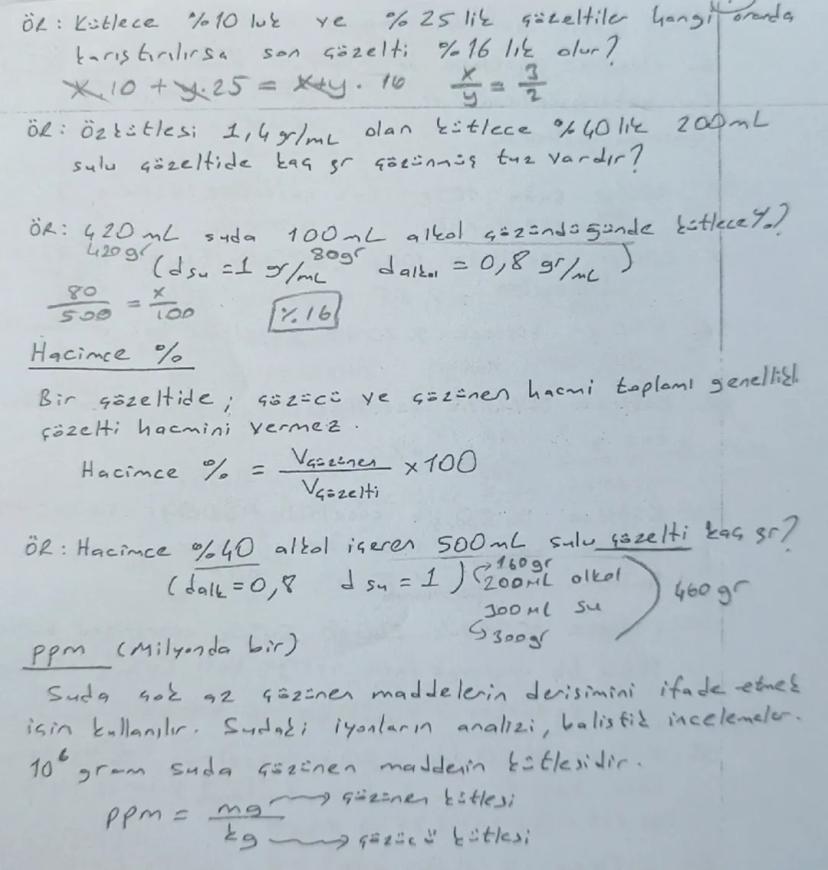 ÖR: Kütlece %10 luk ve %25 lik çözeltiler hangi oranda
karıştırılırsa son çözelti %16 lık olur?
x.10 + y.25 = x+y . 16   x/y = 3/2
ÖR: Özkütlesi 1,4 gr/mL olan kütlece %40 lık 200mL
sulu çözeltide kaç gr çözünmüş tuz vardır?
ÖR: 420 mL suda 100mL alkol çözündüğünde kütlece %?
420gr   80gr
(dsu = 1 gr/mL   dalkol = 0,8 gr/mL)
80/500 = x/100   %16
Hacimce %
Bir çözeltide; çözücü ve çözünen hacmi toplamı genellikl
çözelti hacmini vermez.
Hacimce % = Vçözünen/Vçözelti x100
ÖR: Hacimce %40 alkol içeren 500mL sulu çözelti kaç gr?
(dalk = 0,8   dsu = 1)
160gr
200mL alkol
300mL su
300gr
460 gr
ppm (Milyonda bir)
Suda çok az çözünen maddelerin derişimini ifade etmek
için kullanılır. Sudaki iyonların analizi, balistik incelemeler.
10⁶ gram suda çözünen maddenin kütlesidir.
ppm = mg/kg
mg → çözünen kütlesi
kg → çözücü kütlesi